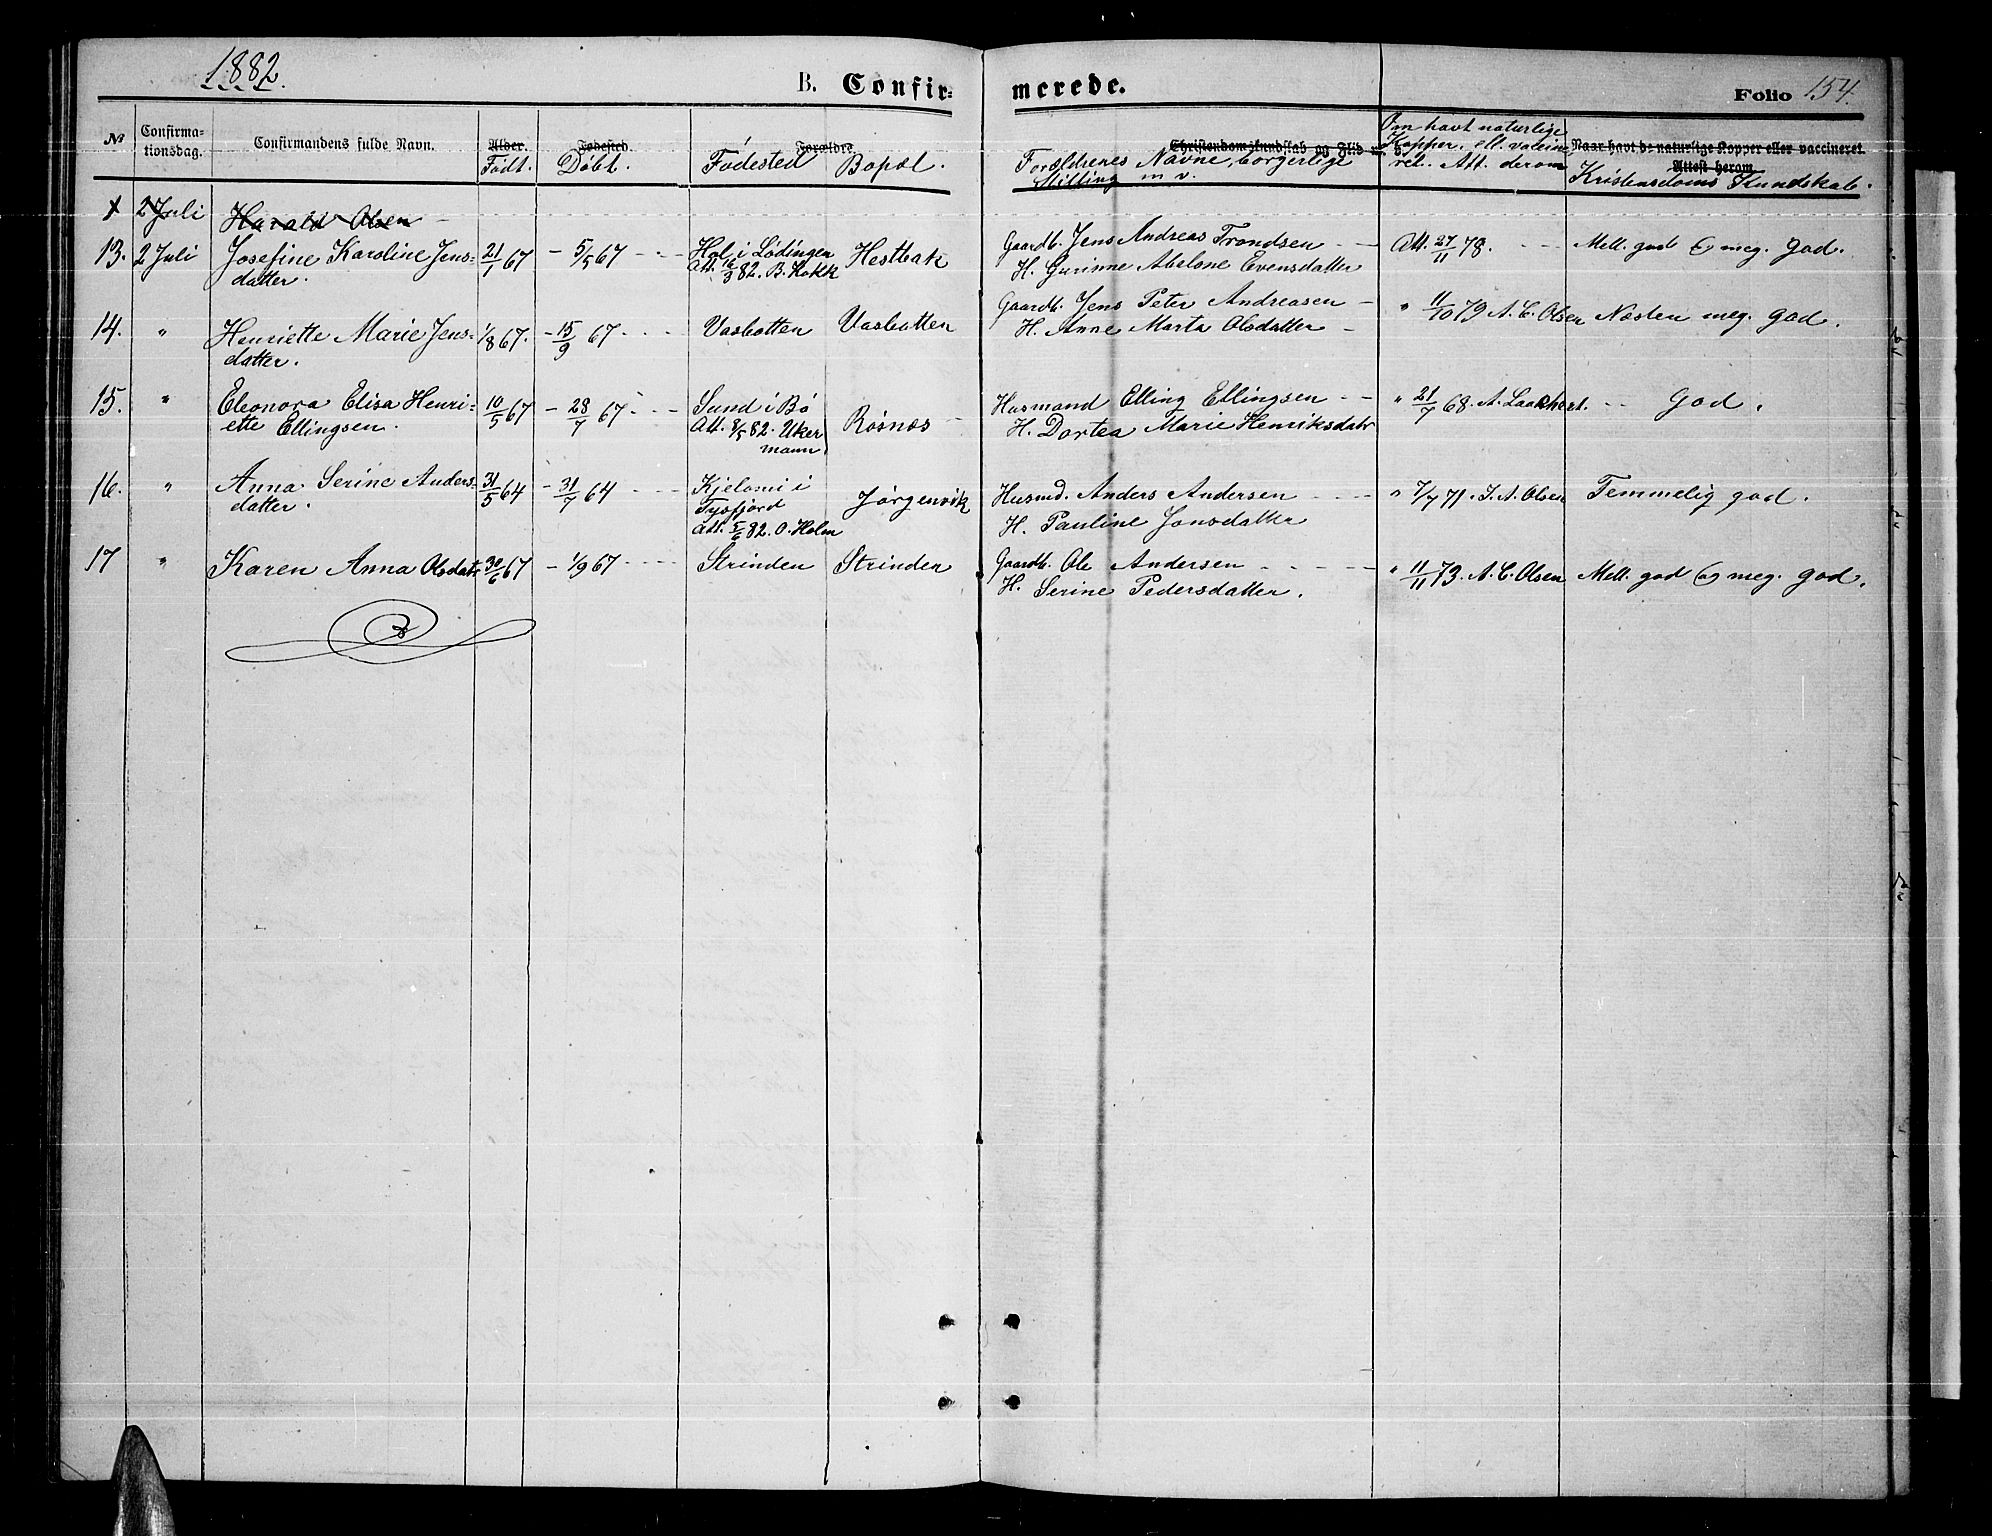 1882.
B. Confir=
merede.
Folio 154.
№
Confirma=
tionsdag.
Confirmandens fulde Navn.
Alder.
Født.
Fødested.
Døbt.
Forældre.
Fødested
Bopæl.
Christendomskundskab og Flid
Forældrenes Navne, borgerlige
Stilling m v.
Om havt naturlige
Kopper. ell. vaksine
ret. Att. derom
Naar havt de naturlige Kopper eller vaccineret.
Attest herom
Kristendoms Kundskab.
1 2 Juli Harald Olsen
13. 2 Juli Josefine Karoline Jens= 21/1 67 - 5/5 67 Hol i Lødingen Hestbak Gaardb. Jens Andreas Trondsen Att. 27/11 78. Mell. god og meg. god.
datter. Att. 16/3 82. B. Kokk H. Gurinne Abelone Evensdatter
14. " Henriette Marie Jens= 1/8 67. - 15/9 67 Vasbotten Vasbotten Gaardb. Jens Peter Andreasen " 11/10 79 A. C. Olsen Næsten meg. god.
datter. H. Anne Marta Olsdatter
15. " Eleonora Elisa Henri= 10/5 67 - 28/7 67 Sund i Bø Røsnæs Husmand Elling Ellingsen " 21/7 68. A. God.
ette Ellingsen. Att. 8/5 82. Uker H. Dortea Marie Henriksdatr
mann
16. " Anna Serine Anders= 31/5 64 - 31/7 64 Kjelomi i Jørgenvik Husmd. Anders Andersen " 7/7 71. J. A. Olsen Temmelig god.
datter. Tysfjord H. Pauline Jonsdatter
Att. 5/6 82. O. Holm
17 " Karen Anna Olsdatr 30/6 67 - 1/9 67 Strinden Strinden Gaardb. Ole Andersen " 11/11 73. A. C. Olsen Mell. god og meg. god.
H. Serine Pedersdatter.